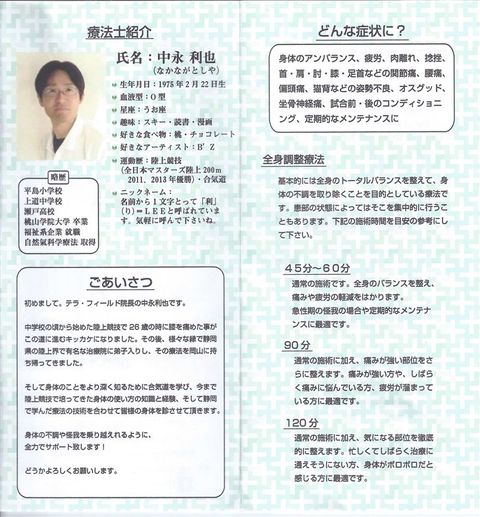 療法士紹介
氏名：中永 利也
（なかながとしや）
生年月日：1975年2月22日生
血液型：O型
星座：うお座
趣味：スキー・読書・漫画
好きな食べ物：桃・チョコレート
好きなアーティスト：B'Z
運動歴：陸上競技
（全日本マスターズ陸上200m
2011、2013年優勝）・合気道
ニックネーム：
名前から1文字とって「利」
（り）＝LEEと呼ばれていま
す。気軽に呼んで下さいね。
略歴
平島小学校
上道中学校
瀬戸高校
桃山学院大学 卒業
福祉系企業 就職
自然氣科学療法 取得
ごあいさつ
初めまして。テラ・フィールド院長の中永利也です。
中学校の頃から始めた陸上競技で26歳の時に膝を痛めた事が
この道に進むキッカケになりました。その後、様々な縁で静岡
県の陸上界で有名な治療院に弟子入りし、その療法を岡山に持
ち帰ってきました。
そして身体のことをより深く知るために合気道を学び、今まで
陸上競技で培ってきた身体の使い方の知識と経験、そして静岡
で学んだ療法の技術を合わせて皆様の身体を診させて頂きます。
身体の不調や怪我を乗り越えれるように、
全力でサポート致します！
どうかよろしくお願いします。
どんな症状に？
身体のアンバランス、疲労、肉離れ、捻挫、
首・肩・肘・膝・足首などの関節痛、腰痛、
偏頭痛、猫背などの姿勢不良、オスグッド、
坐骨神経痛、試合前・後のコンディショニ
ング、定期的なメンテナンスに
全身調整療法
基本的には全身のトータルバランスを整えて、身
体の不調を取り除くことを目的としている療法で
す。患部の状態によってはそこを集中的に行うこ
ともあります。下記の施術時間を目安の参考にし
て下さい。
45分～60分
通常の施術です。全身のバランスを整え、
痛みや疲労の軽減をはかります。
急性期の怪我の場合や定期的なメンテナ
ンスに最適です。
90分
通常の施術に加え、痛みが強い部位をさ
らに整えます。痛みが強い方や、しばら
く痛みに悩んでいる方、疲労が溜まって
いる方に最適です。
120分
通常の施術に加え、気になる部位を徹底
的に整えます。忙しくてしばらく治療に
通えそうにない方、身体がボロボロだと
感じる方に最適です。